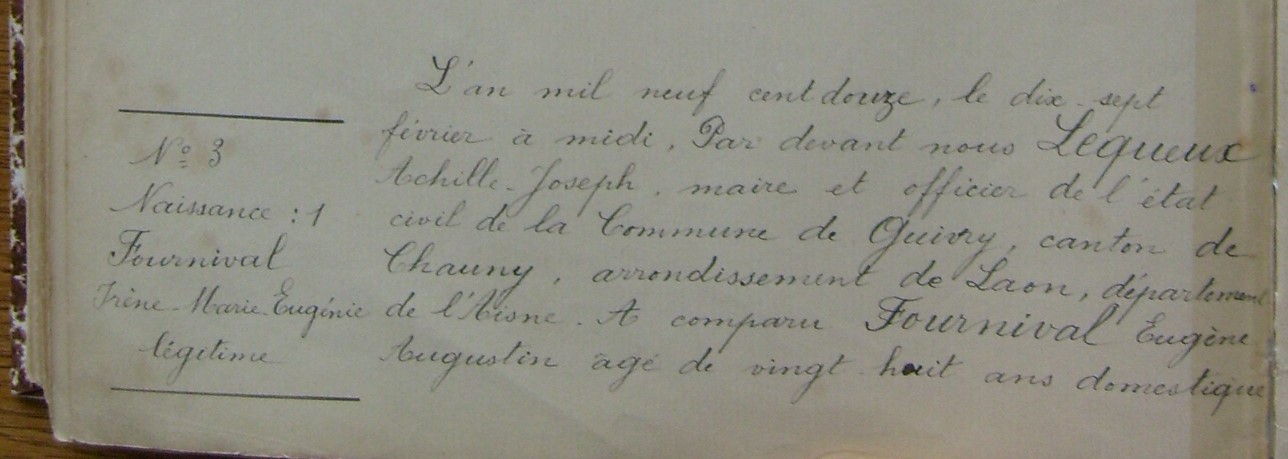 N° 3
Naissance : 1
Fournival
Irène-Marie-Eugénie
légitime
L'an mil neuf cent douze, le dix-sept
février à midi, Par devant nous Lequeux
Achille-Joseph, maire et officier de l'état
civil de la Commune de Guivry, canton de
Chauny, arrondissement de Laon, département
de l'Aisne. A comparu Fournival Eugène
Augustin âgé de vingt-huit ans domestique